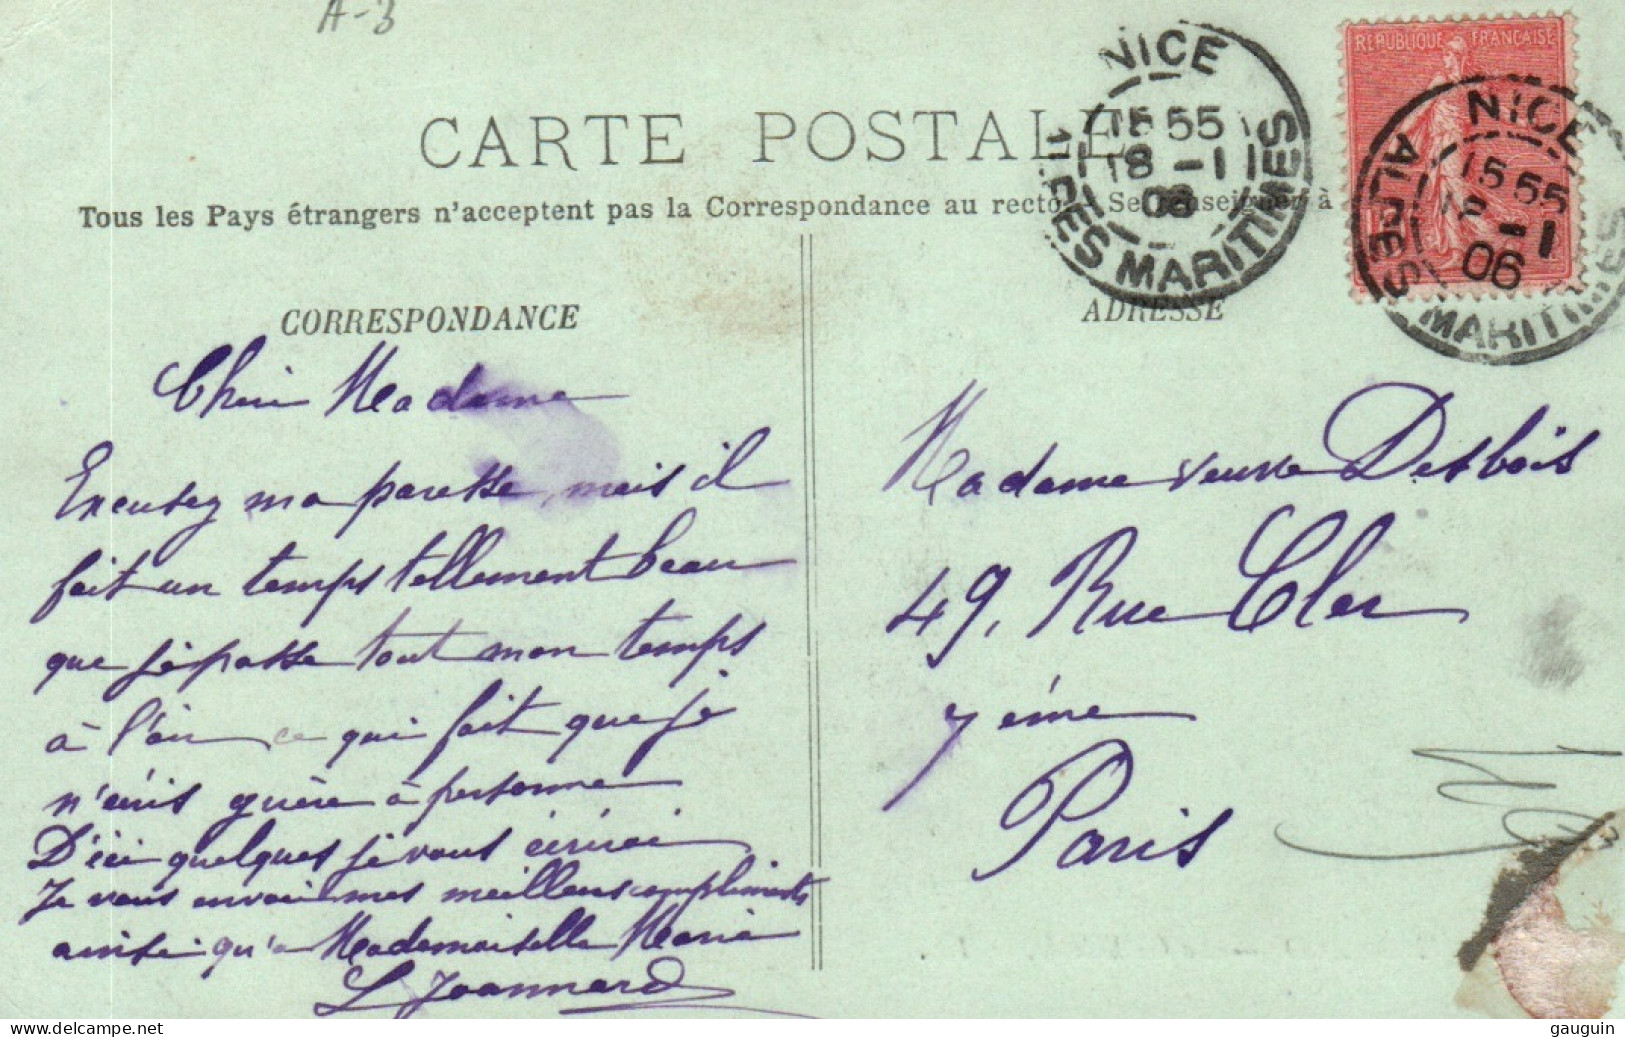 A-3
CARTE POSTALE
Tous les Pays étrangers n'acceptent pas la Correspondance au recto. Se renseigner à
NICE
15 55
18 -1
06
ALPES MARITIMES
RÉPUBLIQUE FRANÇAISE
NICE
15 55
18 -1
06
ALPES MARITIMES
CORRESPONDANCE
Chère Madame
Excusez ma paresse, mais il
fait un temps tellement beau
que je passe tout mon temps
à l'air ce qui fait que je
n'écris guère à personne
D'ici quelques je vous écrirai
Je vous envoie mes meilleurs compliments
ainsi qu'a Mademoiselle Maria
L Joannard
ADRESSE
Madame veuve Desbois
49, Rue Cler
7 ème
Paris
www.delcampe.net
gauguin